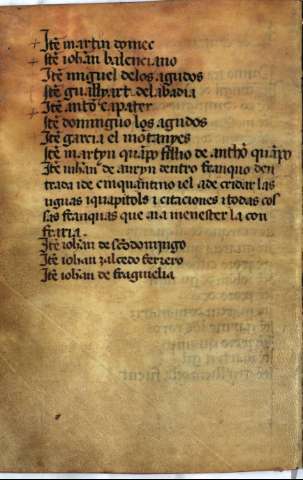 + Itē martin domec
+ Itē johan balenciano
Itē miguel delos agudos
Itē guallart delabadia
+ Itē antō capater
Itē domingo los agudos
Itē garcia el mōtanyes
Itē martyn fillo de anthō
Itē johan de auryn dentro franquo den
trada ide cinquanteno iel ade cridar las
uguas iquapitols i citaciones itodas cos
sas franquas que aia menester la con
fraria.
Itē johan de scō domingo
Itē johan salcedo ferrero
Itē johan de